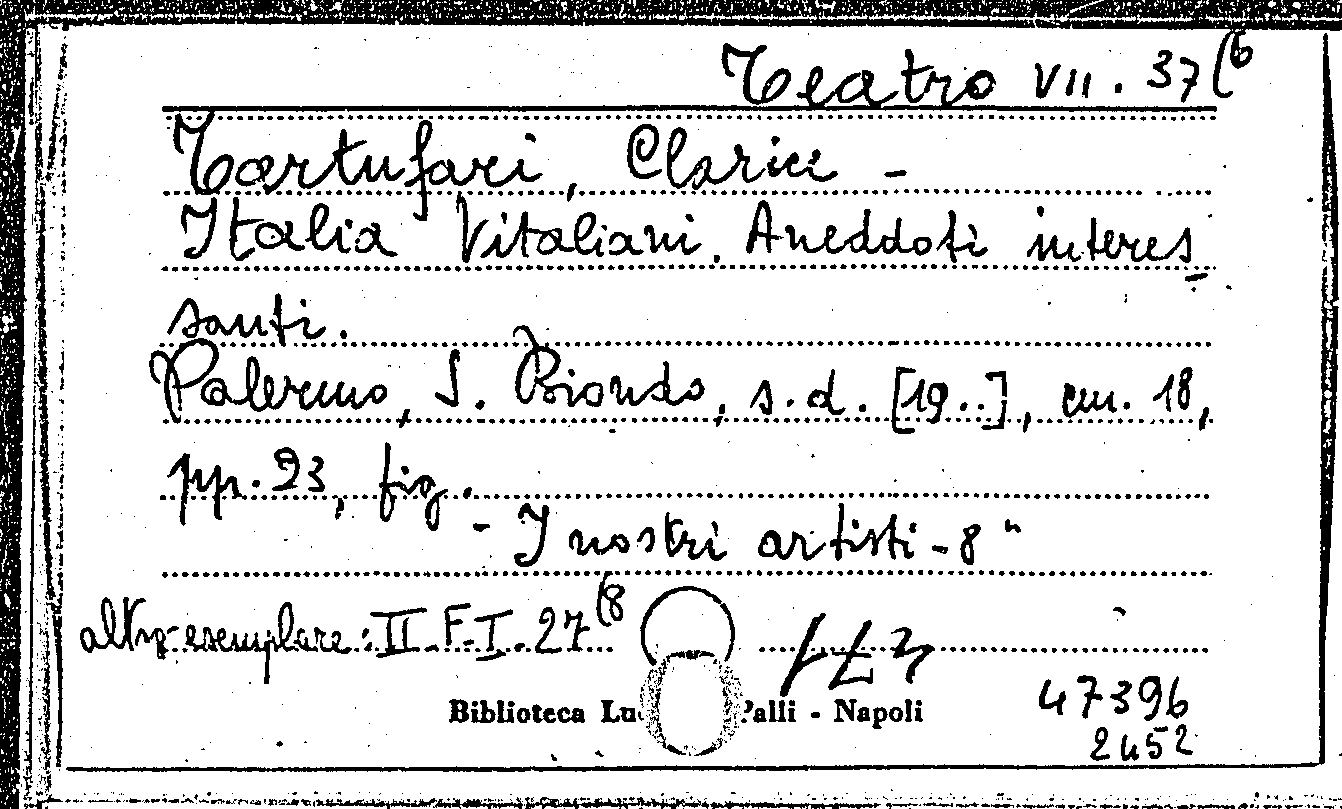 Teatro VII. 37 (6
Tartufari, Clarice -
Italia Vitaliani. Aneddoti interes
santi.
Palermo, S. Biondo, s.d. [19..], cm. 18,
pp. 23, fig.
- I nostri artisti - 8"
altro esemplare: II. F. I. 27 (8
Biblioteca Palli - Napoli
47396
2452